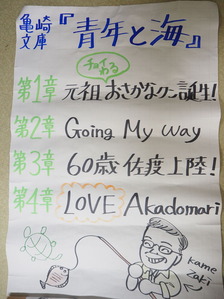 亀崎文庫『青年と海』
チョイわる
第1章 元祖おさかなクン誕生!
第2章 Going My Way
第3章 60歳佐渡上陸!
第4章 LOVE Akadomari
kame
zaki